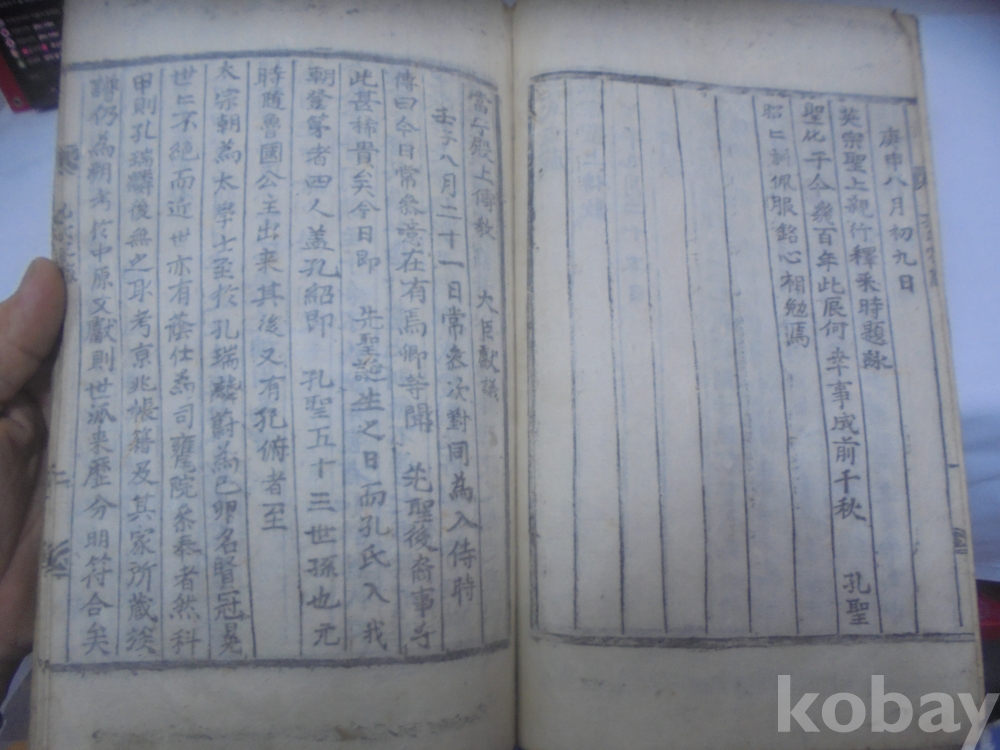 庚申八月初九日
英宗聖上親行釋菜時題詠
聖化于今幾百年此展何幸事成前千秋 孔聖
昭〻訓佩服銘心相勉焉
當宁殿上傳教 大臣獻議
壬子八月二十一日常參次對同為入侍時
傳曰今日常參噫在有焉卿等聞 先聖後裔事乎
此甚稀貴矣今日即 先聖誕生之日而孔氏入我
朝登第者四人盖孔紹即 孔聖五十三世孫也元
時隨魯國公主出来其後又有孔俯者至
太宗朝為太學士至於孔瑞麟蔚為己卯名賢冠冕
世〻不絕而近世亦有蔭仕為司饔院參奉者然科
甲則孔瑞麟後無之耳考京兆帳籍及其家所藏族
譜仍為朔考於中原文獻則世派来歷分明符合矣
kobay